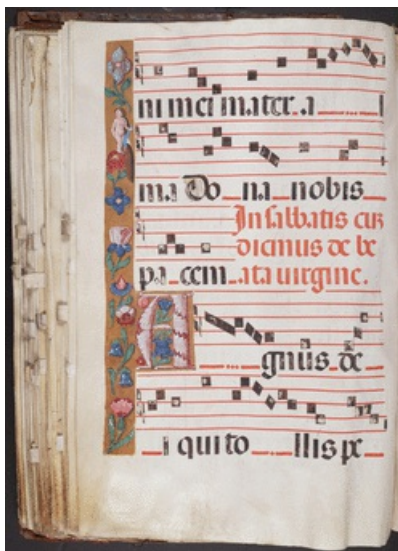 ni mei mater.a
ma Do na nobis
In sabbatis cuz
dicimus de be
pa cem ata uirgine.
Agnus de
i qui to llis pc